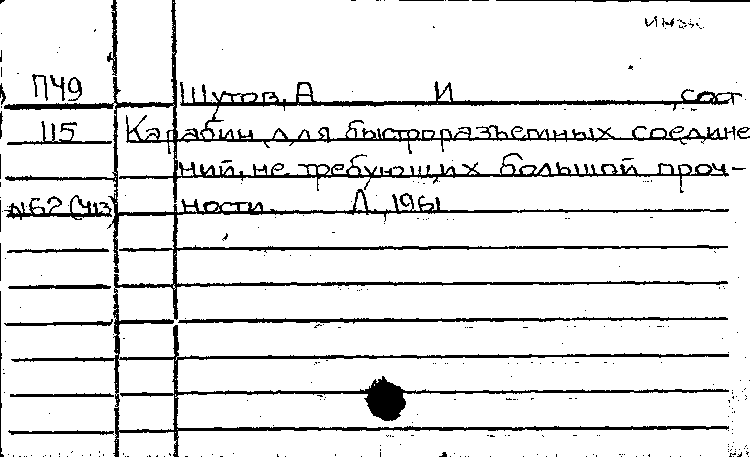 инж
П49 Шутов, А И , сост
115 Карабин для быстроразъемных соедине
ний, не требующих большой проч-
№62(413) ности. Л., 1961